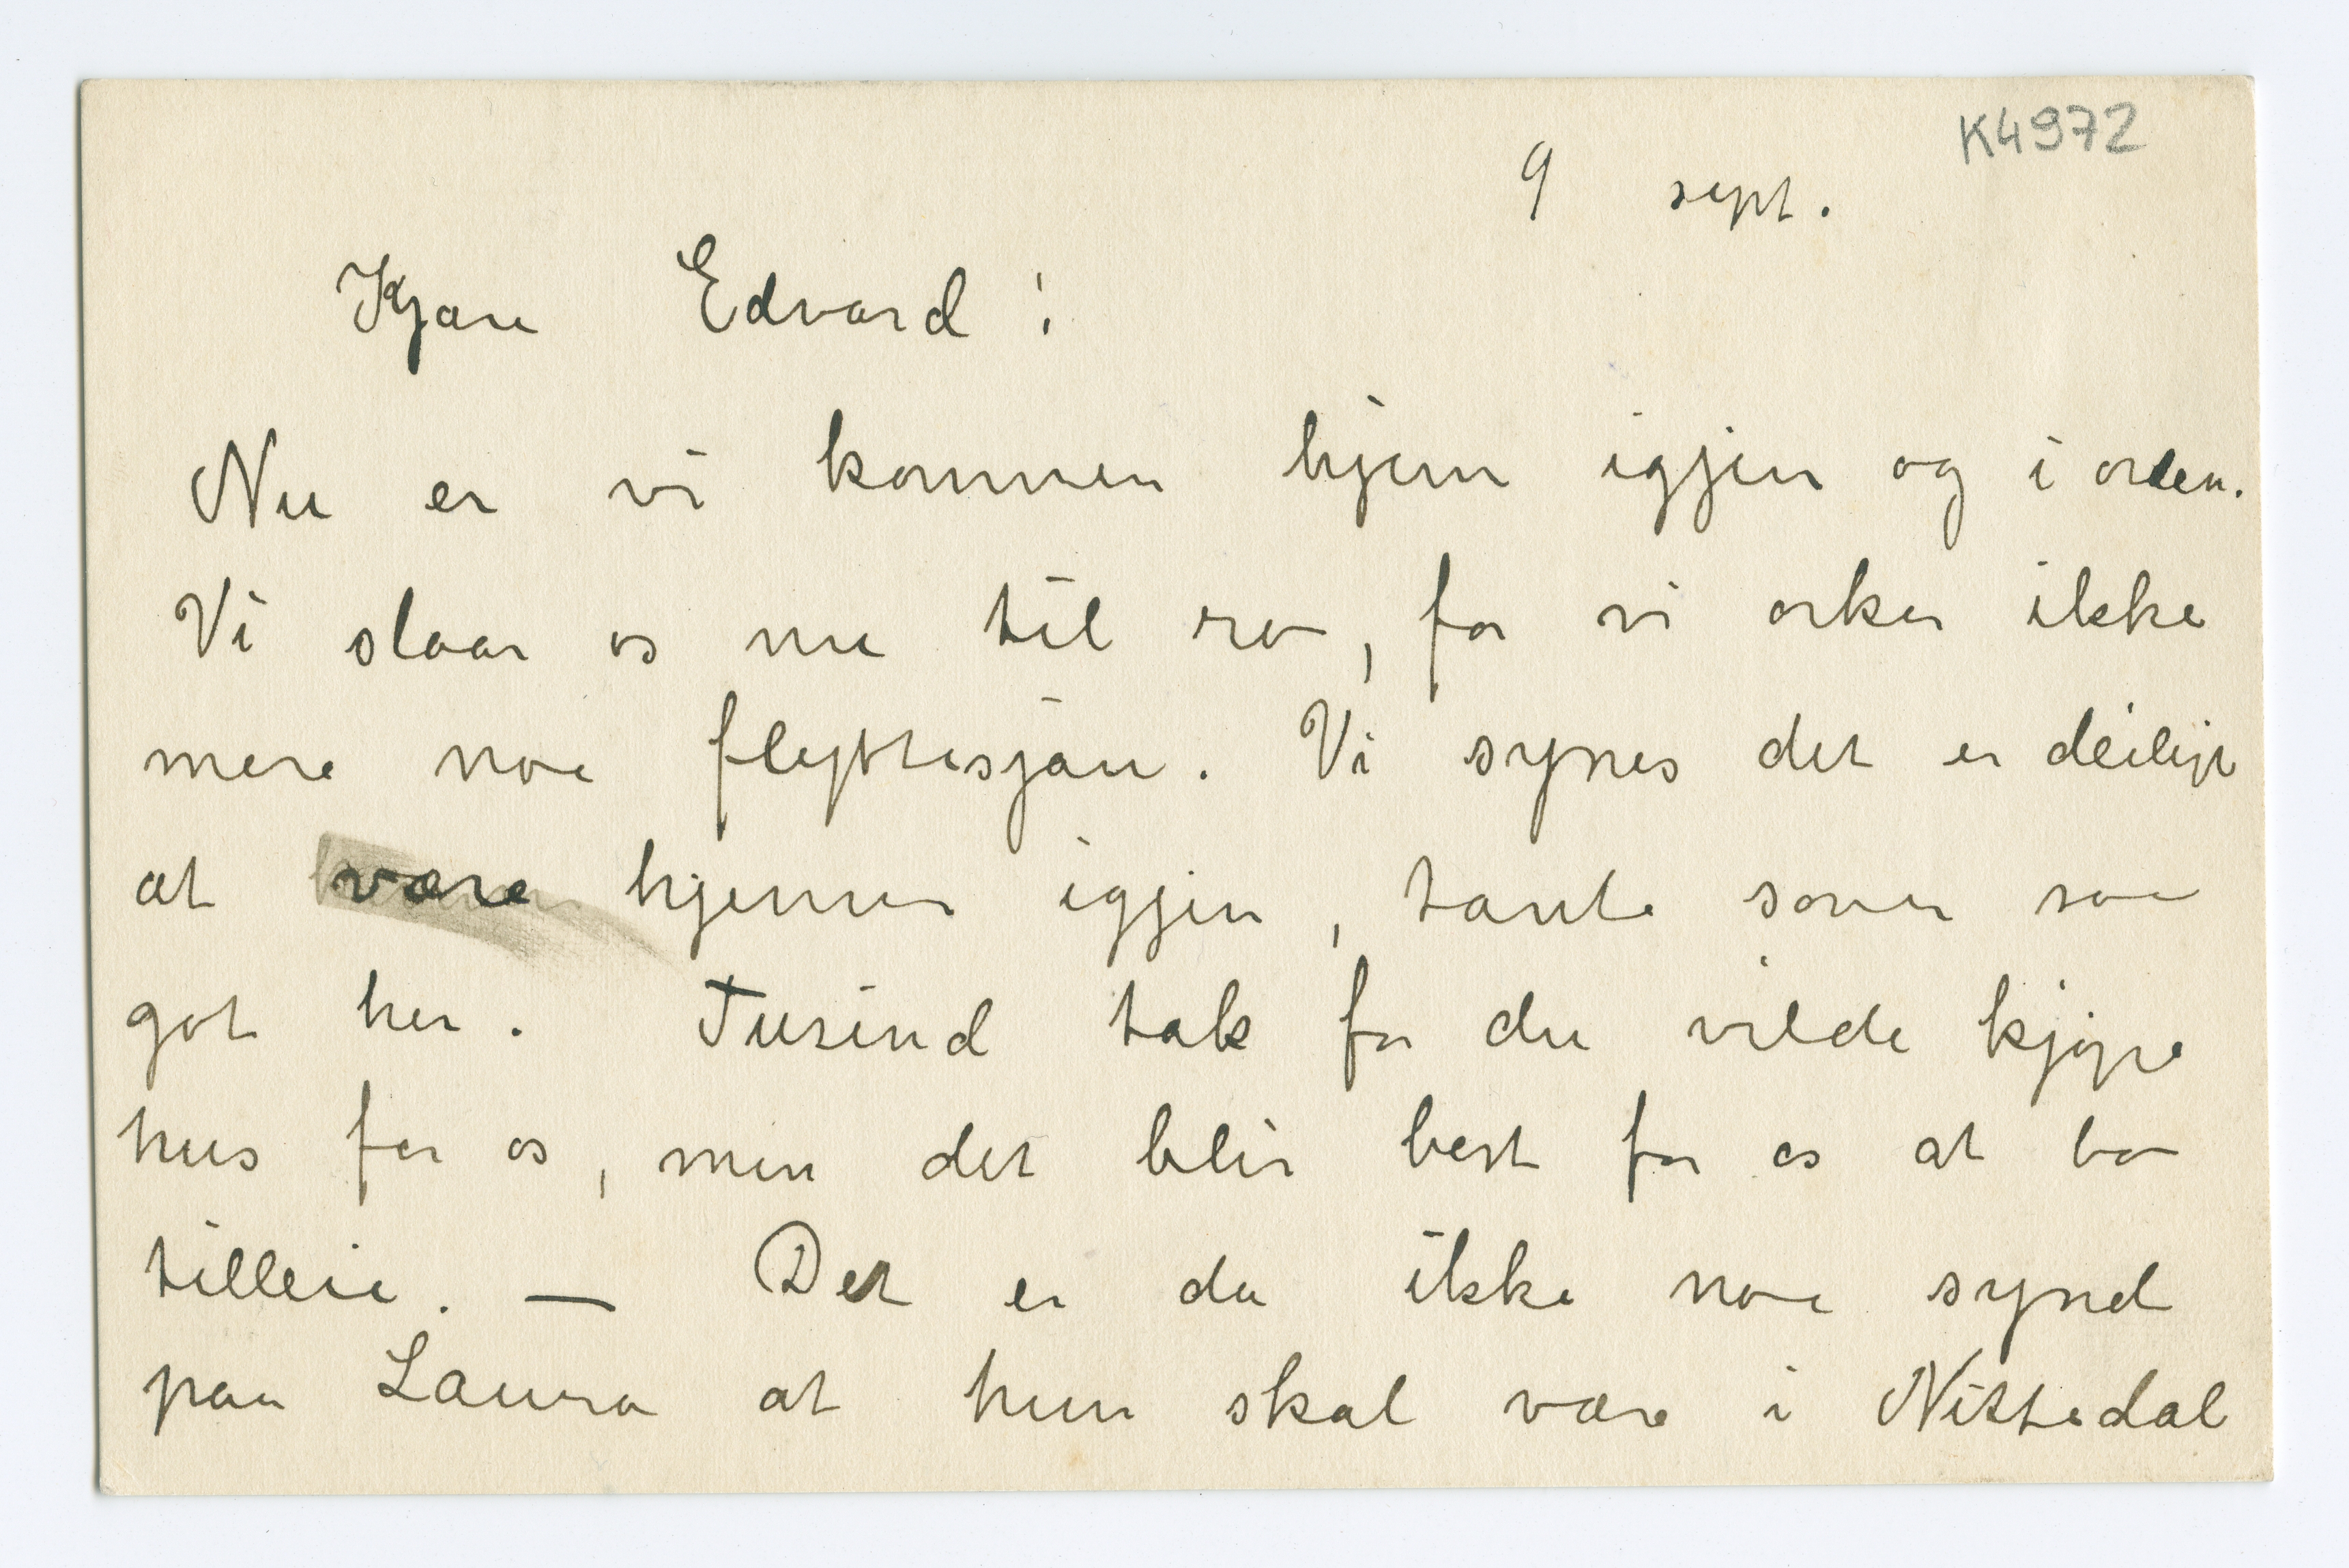 K4972
9 sept.
Kjære Edvard!
Nu er vi kommen hjem igjen og i orden.
Vi slaar os nu til ro, for vi orker ikke
mere noe flyttesjau. Vi synes det er deiligt
at være hjemme igjen, tante sover saa
got her. Tusind tak for du vilde kjøpe
hus for os, men det blir best for os at bo
tilleie. — Det er da ikke noe synd
paa Laura at hun skal være i Nittedal